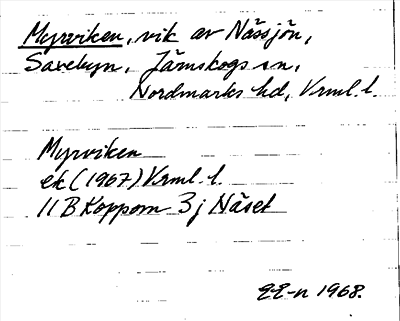 Myrviken, vik av Nässjön,
Saxebyn, Järnskogs sn,
Nordmarks hd, Vrml. l.
Myrviken
ek (1967) Vrml. l.
11 B Koppom 3 j Näset
1968.